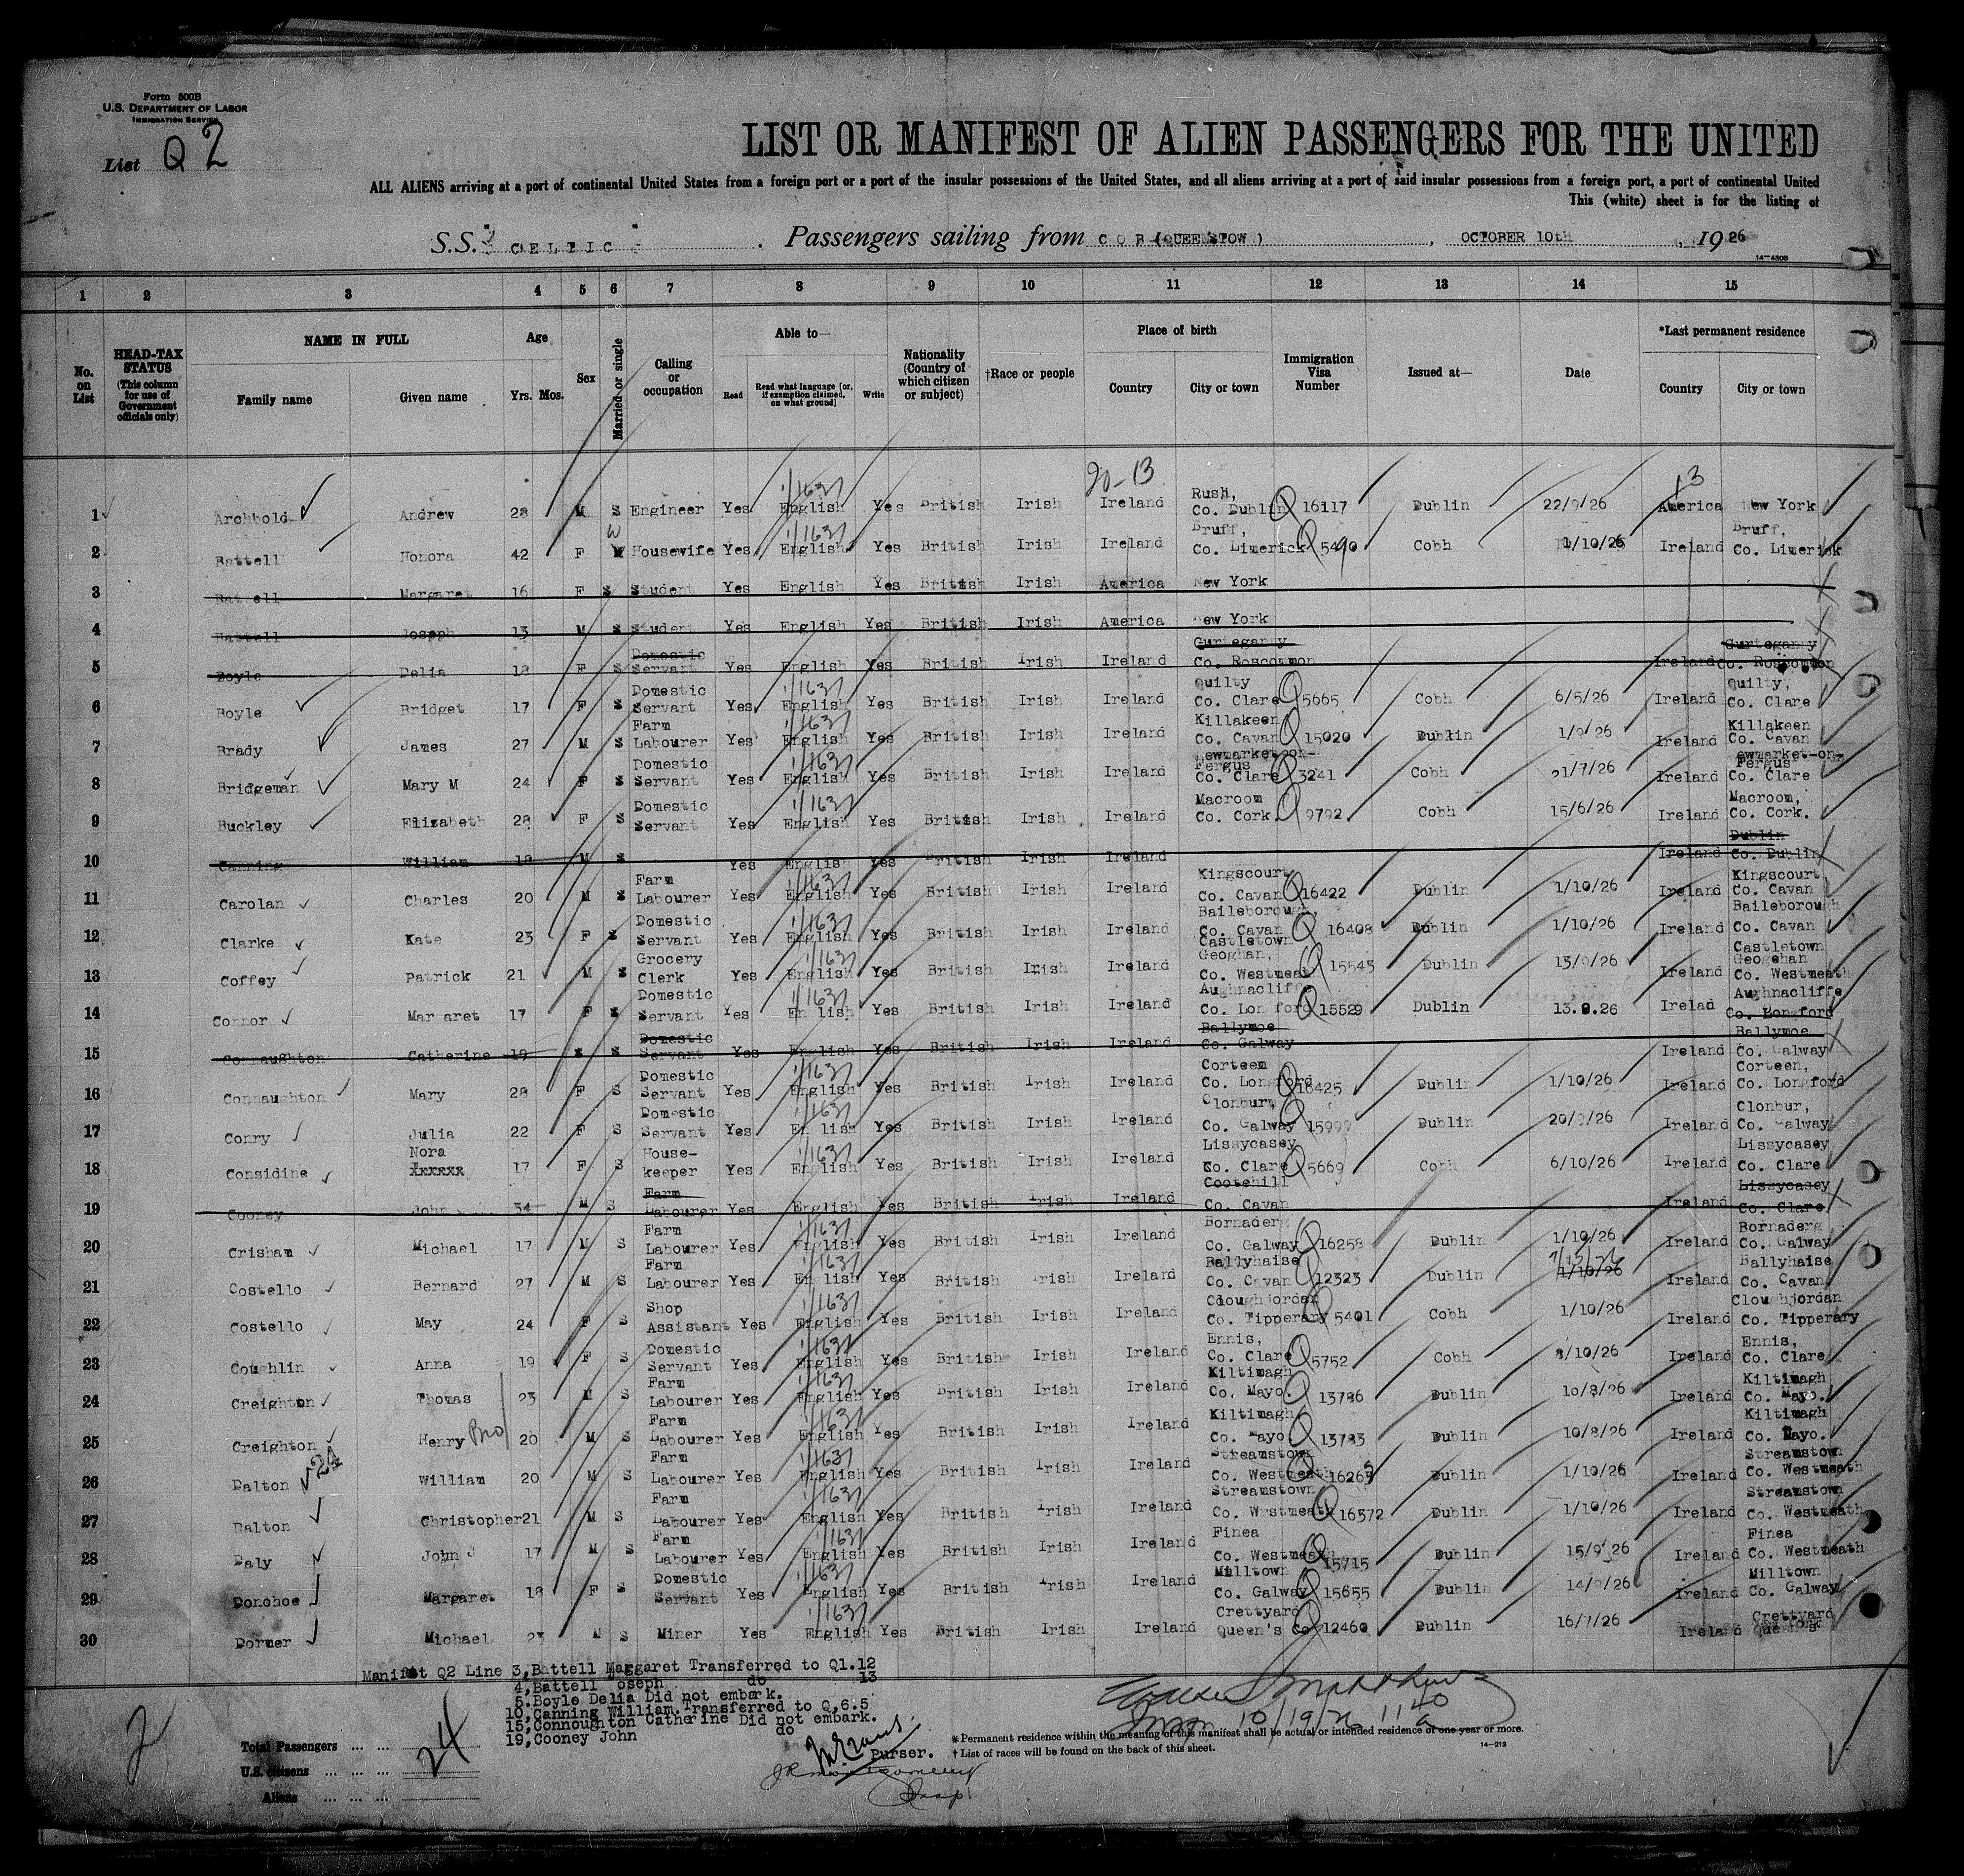 Form 500B
U.S. DEPARTMENT OF LABOR
IMMIGRATION SERVICE
List Q 2
LIST OR MANIFEST OF ALIEN PASSENGERS FOR THE UNITED
ALL ALIENS arriving at a port of continental United States from a foreign port or a port of the insular possessions of the United States, and all aliens arriving at a port of said insular possessions from a foreign port, a port of continental United
This (white) sheet is for the listing of
S.S. "CELTIC" . Passengers sailing from COB (QUEENSTOWN) , OCTOBER 10th , 1926
14-430B
1 2 3 4 5 6 7 8 9 10 11 12 13 14 15
No. on List
HEAD-TAX STATUS (This column for use of Government officials only)
NAME IN FULL
Family name Given name
Age Yrs. Mos.
Sex
Married or single
Calling or occupation
Able to—
Read Read what language [or, if exemption claimed, on what ground] Write
Nationality (Country of which citizen or subject)
†Race or people
Place of birth
Country City or town
Immigration Visa Number
Issued at—
Date
*Last permanent residence
Country City or town
20-13 13
1 Archbold Andrew 28 M S Engineer Yes English 1/1637 Yes British Irish Ireland Rush, Co. Dublin Q 16117 Dublin 22/9/26 America New York
2 Battell Honora 42 F W Housewife Yes English 1/1637 Yes British Irish Ireland Bruff, Co. Limerick Q 5490 Cobh 1/10/26 Ireland Bruff, Co. Limerick
3 Battell Margaret 16 F S Student Yes English Yes British Irish America New York
4 Battell Joseph 13 M S Student Yes English Yes British Irish America New York
5 Boyle Delia 18 F S Domestic Servant Yes English Yes British Irish Ireland Gurteganny Co. Roscommon Ireland Gurteganny Co. Roscommon
6 Boyle Bridget 17 F S Domestic Servant Yes English 1/1637 Yes British Irish Ireland Quilty Co. Clare Q 5665 Cobh 6/5/26 Ireland Quilty, Co. Clare
7 Brady James 27 M S Farm Labourer Yes English 1/1637 Yes British Irish Ireland Killakeen Co. Cavan Q 15020 Dublin 1/9/26 Ireland Killakeen Co. Cavan
8 Bridgeman Mary M 24 F S Domestic Servant Yes English 1/1637 Yes British Irish Ireland Newmarket-on-Fergus Co. Clare Q 3241 Cobh 21/7/26 Ireland Newmarket-on-Fergus Co. Clare
9 Buckley Elizabeth 28 F S Domestic Servant Yes English 1/1637 Yes British Irish Ireland Macroom Co. Cork. Q 9792 Cobh 15/6/26 Ireland Macroom, Co. Cork.
10 Canning William 18 M S Yes English Yes British Irish Ireland Ireland Dublin Co. Dublin
11 Carolan Charles 20 M S Farm Labourer Yes English 1/1637 Yes British Irish Ireland Kingscourt Co. Cavan Q 16422 Dublin 1/10/26 Ireland Kingscourt, Co. Cavan
12 Clarke Kate 23 F S Domestic Servant Yes English 1/1637 Yes British Irish Ireland Baileborough, Co. Cavan Q 16408 Dublin 1/10/26 Ireland Baileborough Co. Cavan
13 Coffey Patrick 21 M S Grocery Clerk Yes English 1/1637 Yes British Irish Ireland Castletown Geoghan, Co. Westmeat Q 15543 Dublin 13/9/26 Ireland Castletown Geogehan Co. Westmeath
14 Connor Mar aret 17 F S Domestic Servant Yes En lish 1/1637 Yes British Irish Ireland Aughnacliff Co. Longford Q 15529 Dublin 13.9.26 Irelad Aughnacliffe Co. Longford
15 Connaughton Catherine 19 S Domestic Servant Yes English Yes British Irish Ireland Ballymoe Co. Galway Ireland Ballymoe Co. Galway
16 Connaughton Mary 28 F S Domestic Servant Yes English 1/1637 Yes British Irish Ireland Corteen Co. Longford Q 16425 Dublin 1/10/26 Ireland Corteen, Co. Longford
17 Conry Julia 22 F S Domestic Servant Yes En lish 1/1637 Yes British Irish Ireland Clonbur, Co. Galway Q 15999 Dublin 20/9/26 Ireland Clonbur, Co. Galway
18 Considine Nora xxxxxx 17 F S House-keeper Yes English 1/1637 Yes British Irish Ireland Lissycasey Co. Clare Q 5669 Cobh 6/10/26 Ireland Lissycasey Co. Clare
19 Cooney John 34 M S Farm Labourer Yes English Yes British Irish Ireland Cootehill Co. Cavan Ireland Lissycasey Co. Clare
20 Crisham Michael 17 M S Farm Labourer Yes English 1/1637 Yes British Irish Ireland Bornaderg Co. Galway Q 16258 Dublin 1/10/26 Ireland Bornaderg Co. Galway
21 Costello Bernard 27 M S Farm Labourer Yes English 1/1637 Yes British Irish Ireland Ballyhaise Co. Cavan Q 12323 Dublin 1/10/26 Ireland Ballyhaise Co. Cavan
22 Costello May 24 F S Shop Assistant Yes English 1/1637 Yes British Irish Ireland Cloughjordan Co. Tipperary 5401 Cobh 1/10/26 Ireland Cloughjordan Co. Tipperary
23 Coughlin Anna 19 F S Domestic Servant Yes English 1/1637 Yes British Irish Ireland Ennis, Co. Clare Q 5752 Cobh 8/10/26 Ireland Ennis, Co. Clare
24 Creighton Thomas 23 M S Farm Labourer Yes English 1/1637 Yes British Irish Ireland Kiltimagh Co. Mayo. Q 13786 Dublin 10/8/26 Ireland Kiltimagh Co. Mayo.
25 Creighton Henry Bro 20 M S Farm Labourer Yes English 1/1637 Yes British Irish Ireland Kiltimagh Co. Mayo Q 13783 Dublin 10/8/26 Ireland Kiltimagh Co. Mayo.
26 Dalton 24 William 20 M S Farm Labourer Yes English 1/1637 Yes British Irish Ireland Streamstown Co. Westmeath Q 16263 Dublin 1/10/26 Ireland Streamstown Co. Westmeath
27 Dalton Christopher 21 M S Farm Labourer Yes English 1/1637 Yes British Irish Ireland Streamstown Co. Wrstmeath Q 16372 Dublin 1/10/26 Ireland Streamstown Co. Westmeath
28 Daly John J 17 M S Farm Labourer Yes English 1/1637 Yes British Irish Ireland Finea Co. Westmeath Q 15715 Dublin 15/9/26 Ireland Finea Co. Westmeath
29 Donohoe Margaret 18 F S Domestic Servant Yes English 1/1637 Yes British Irish Ireland Milltown Co. Galway Q 15655 Dublin 14/9/26 Ireland Milltown Co. Galway
30 Dormer Michael 23 M S Miner Yes English 1/1637 Yes British Irish Ireland Crettyard Queen's Co Q 12460 Dublin 16/7/26 Ireland Crettyard Queen's
Manifest Q2 Line 3, Battell Margaret Transferred to Q1.12
4, Battell Joseph do 13
5. Boyle Delia Did not embark.
10, Canning William. Transferred to Q,6.5
15, Connoughton Catherine Did not embark.
19, Cooney John do
Purser.
10/19/26 11 40 a
2
24
Total Passengers ... ...
U.S. citizens ... ... ...
Aliens ... ... ...
* Permanent residence within the meaning of this manifest shall be actual or intended residence of one year or more.
† List of races will be found on the back of this sheet.
14-213